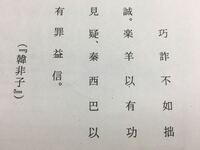 巧詐不如拙
誠。楽羊以有功
見疑秦西巴以
有罪益信。
(『韓非子』)